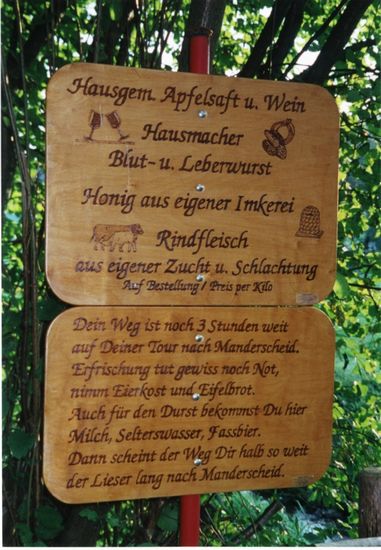 Hausgem. Apfelsaft u. Wein
Hausmacher
Blut- u. Leberwurst
Honig aus eigener Imkerei
Rindfleisch
aus eigener Zucht u. Schlachtung
Auf Bestellung / Preis per Kilo
Dein Weg ist noch 3 Stunden weit
auf Deiner Tour nach Manderscheid.
Erfrischung tut gewiss noch Not,
nimm Eierkost und Eifelbrot.
Auch für den Durst bekommst Du hier
Milch, Selterswasser, Fassbier.
Dann scheint der Weg Dir halb so weit
der Lieser lang nach Manderscheid.